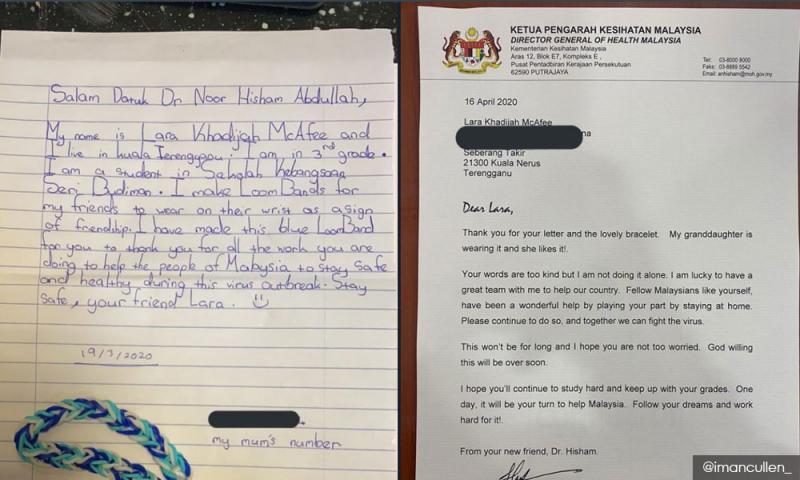 Salam Datuk Dr Noor Hisham Abdullah,
My name is Lara Khadijah McAfee and
I live in Kuala Terengganu. I am in 3rd grade.
I am a student in Sekolah Kebangsaan
Seri Budiman. I make Loom Bands for
my friends to wear on their wrist as a sign
of friendship. I have made this blue LoomBand
for you to thank you for all the work you are
doing to help the people of Malaysia to stay safe
and healthy during this virus outbreak. Stay
safe, your friend Lara.
19/3/2020
my mum's number
KETUA PENGARAH KESIHATAN MALAYSIA
DIRECTOR GENERAL OF HEALTH MALAYSIA
Kementerian Kesihatan Malaysia
Aras 12, Blok E7, Kompleks E,
Pusat Pentadbiran Kerajaan Persekutuan
62590 PUTRAJAYA
Tel: 03-8000 8000
Faks: 03-8889 5542
Email: anhisham@moh.gov.my
16 April 2020
Lara Khadijah McAfee
na
Seberang Takir
21300 Kuala Nerus
Terengganu
Dear Lara,
Thank you for your letter and the lovely bracelet. My granddaughter is
wearing it and she likes it!.
Your words are too kind but I am not doing it alone. I am lucky to have a
great team with me to help our country. Fellow Malaysians like yourself,
have been a wonderful help by playing your part by staying at home.
Please continue to do so, and together we can fight the virus.
This won't be for long and I hope you are not too worried. God willing
this will be over soon.
I hope you'll continue to study hard and keep up with your grades. One
day, it will be your turn to help Malaysia. Follow your dreams and work
hard for it!.
From your new friend, Dr. Hisham.
@imancullen_